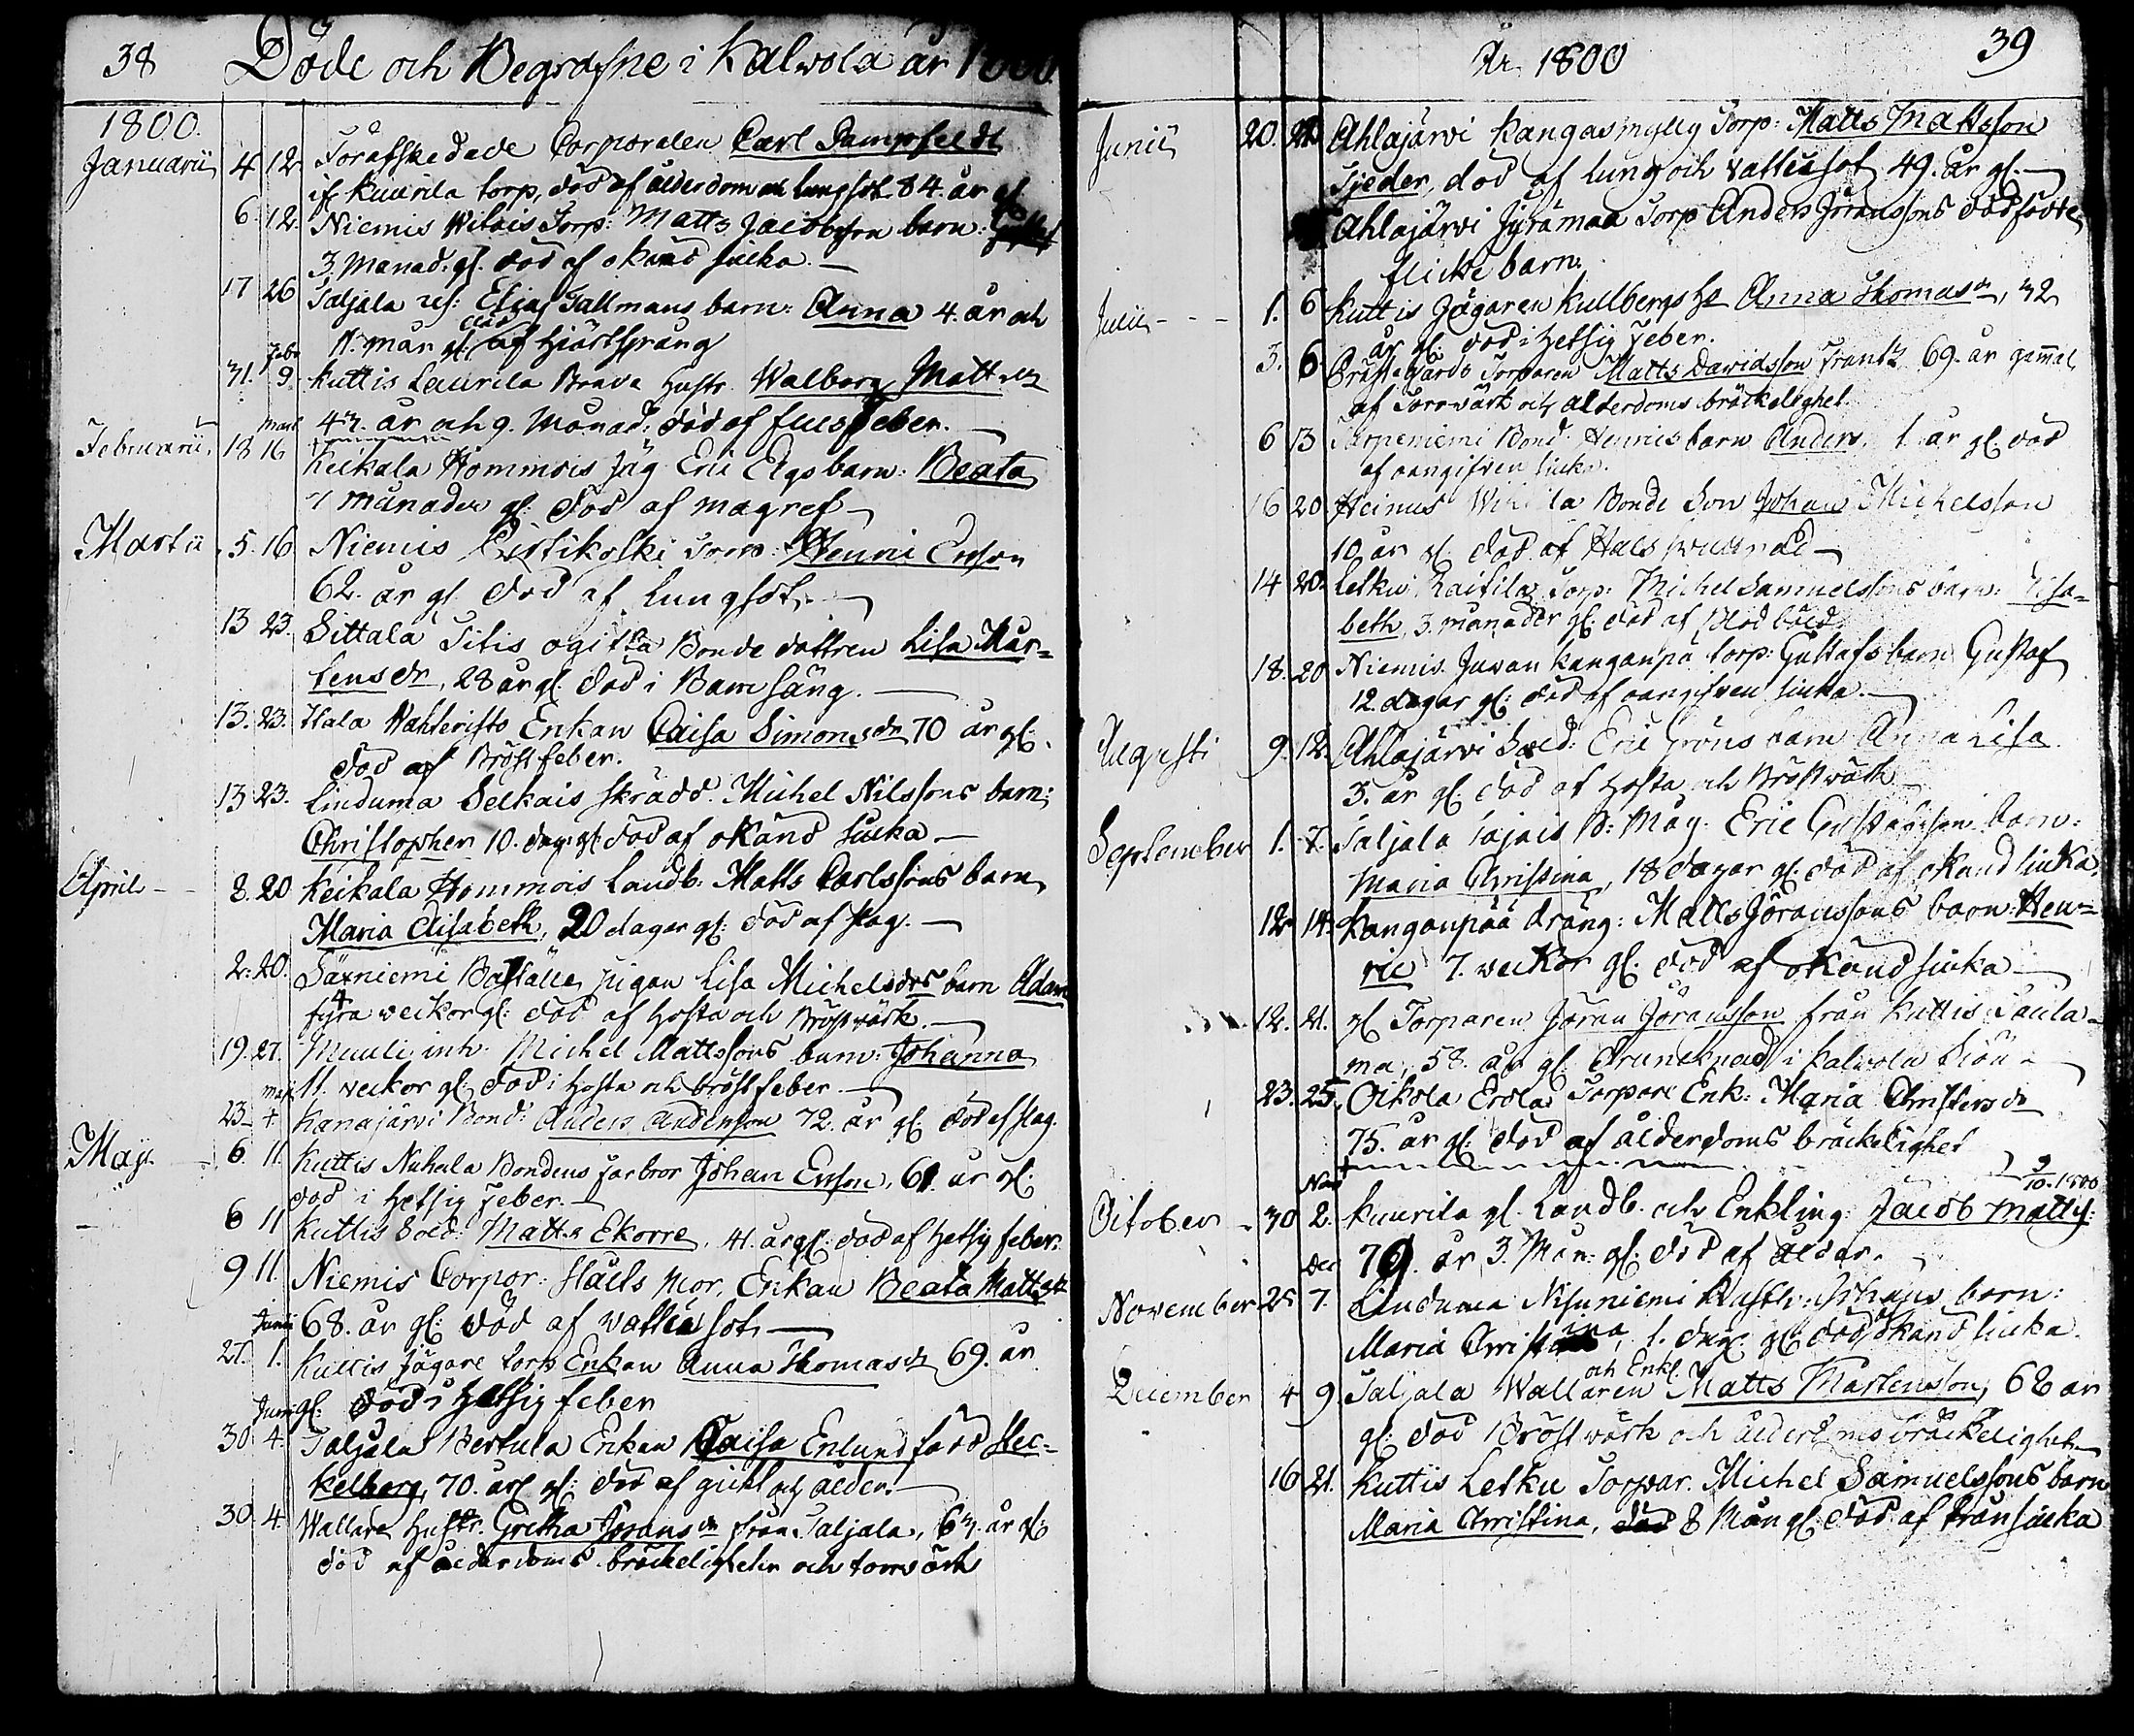 38 Döde och Begrafne i Kalvola år 1800.
1800.
Januarii 4 12 Förafskedade Corporalen Carl Kampfeldt
if Kuurila torp, död af ålderdom och lungsot 84. år gl
6. 12. Niemis Wilais Torp: Matts Jacobsson barn:
3. Månad. gl. död af okänd siuka.
17 26 Taljala uf: Elias Tallmans barn: Anna 4. år och
11. mån gl: död af hiärtsprång
Febr
31. 9. Kuttis Laurila Brava hustr. Walborg Mattsdr
43. år och 9. Månad: död af flussfeber.
Mart
Februarii 18 16 Keikala Hommois Jäg Eric Elgs barn: Beata
7 månader gl: död af magref
Martii 5. 16 Niemis Pirttikoski Torp: Henric Ersson
62. år gl död af Lungsot.
13 23. Sittala Titis ogifta Bonde dottren Lisa Mår=
tensdr, 28 år gl. död i Barnsäng.
13. 23. Itala Wahteristo Enkan Caisa Simonsdr 70 år gl:
död af Bröstfeber.
13 23. Linduma Selkais skrädd. Michel Nilssons barn:
Christopher 10. dag: gl: död af okänd siuka
April 8. 20 Keikala Hommois Landb: Matts Carlssons barn
Maria Elisabeth, 20 dagar gl: död af slag.
2. 20. Säxniemi Pigan Lisa Michelsdrs barn Adam
4
fyra veckor gl: död af hosta och Bröstvärk.
19. 27. Muuli inh: Michel Mattssons barn: Johanna
maji 11. veckor gl: död i hosta och bröstfeber.
23 4 Kanajärvi Bond: Anders Andersson 72. år gl: död af slag.
Maji 6. 11. Kuttis Nuhala Bondens farbror Johan Ersson, 61. år gl:
död i hetsig feber.
6 11 Kuttis Sold: Matts Ekorre, 41. år gl: död af hetsig feber.
9 11. Niemis Corpor: Stålts Mor, Enkan Beata Mattsdr
Junii 68. år gl: död af vattusot.
27. 1. Kuttis Jägare torp Enkan Anna Thomasdr 69. år
Junii gl: död i hetsig feber
30 4. Taljala Bertula Enkan Caisa Enlund född Stec=
kelberg, 70. år gl: död af gickt och ålder.
30. 4. Wallare hustr. Gretha Jöransdr från Taljala, 63. år gl:
död af ålderdoms bräckelighet och torrvärk
År 1800 39
Junii 20. 22 Ahlajärvi Kangasmylly Torp: Matts Mattsson
Tjeder, död af lung och vattusot 49. år gl.
Ahlajärvi Jyrämaa Torp Anders Jöranssons dödfödde
flicke barn.
Julii 1. 6 Kuttis Jägaren Kullbergs h Anna Thomasdr, 32
år gl: död i hetsig feber.
3. 6 Prästegårds Torparen Matts Davidsson Frantz 69. år gammal
af Torrvärk och ålderdoms bräckelighet
6 13 Torpeniemi Bond: Henrics barn Anders, 1. år gl: död
af oangifven siuka.
16 20 Heinus la Bonde Son Johan Michelsson
10. år gl. död af Hals
14 20. Letku Raitila Torp: Michel Samuelssons barn: Elisa=
beth, 3. månader gl: död af Blod böld.
18. 20 Niemis Juvan kanganpä torp: Gustafs barn Gustaf
12. dagar gl: död af oangifven siuka.
Augusti 9. 12. Ahlajärvi Sold: Eric Gröns barn Anna Lisa
3. år gl: död af hosta och Bröstvärk
September 1. 7. Taljala Tajais B: Måg: Eric Gustafsson barn:
Maria Christina, 18 dagar gl: död af okänd siuka.
12 14. Kanganpää dräng: Matts Jöranssons barn: Hen=
ric 7. veckor gl: död af okänd siuka
12. 21. gl Torparen Jöran Jöransson från Kuttis Taula=
ma, 58. år gl. drunknad i Kalvola Siön
23. 25. Oikola Erola Torpare Enk: Maria Christersdr
75. år gl: död af ålderdoms bräckelighet
9/10. 1800
Nov
October 30 2. Kuurila gl. Landb. och Enkling: Jacob Matts:
Dec 79. år 3. Mån: gl: död af ålder.
November 25 7. Linduma Nisuniemi Johans barn:
Maria Christina, 1. dag: gl: död okänd siuka.
och Enkl.
December 4 9 Taljala Wallaren Matts Mårtensson, 62 år
gl: död Bröstvärk och ålderdoms bräckelighet
16 21. Kuttis Letku Torpar. Michel Samuelssons barn
Maria Christina, död 8 Mån gl: död af tråsiuka